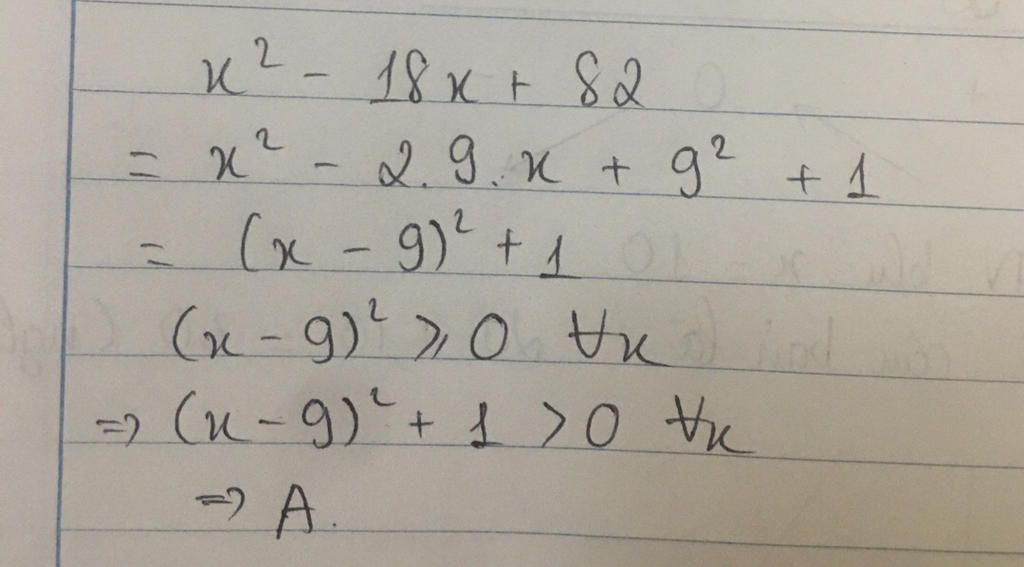 x² - 18x + 82
= x² - 2.9.x + 9² + 1
= (x - 9)² + 1
(x - 9)² ⩾ 0 ∀x
=> (x - 9)² + 1 > 0 ∀x
=> A.